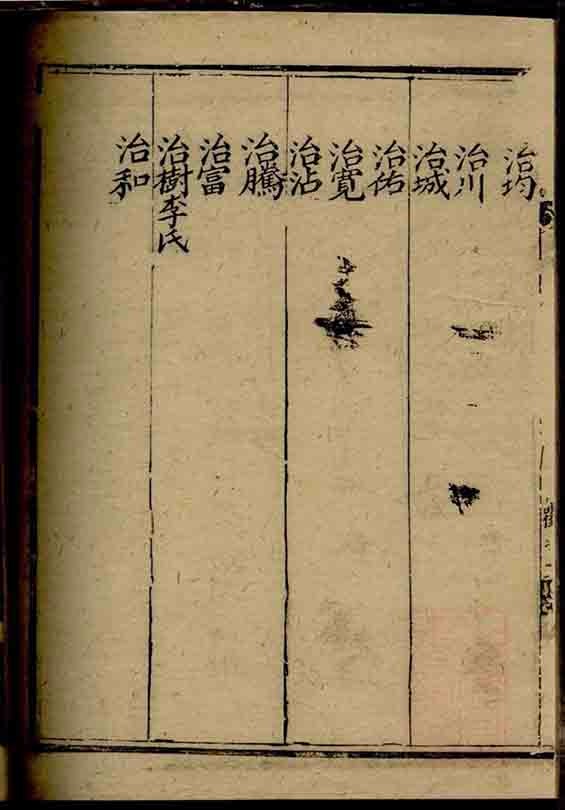 治均
治川
治城
治佑
治寬
治沾
治騰
治富
治樹李氏
治和